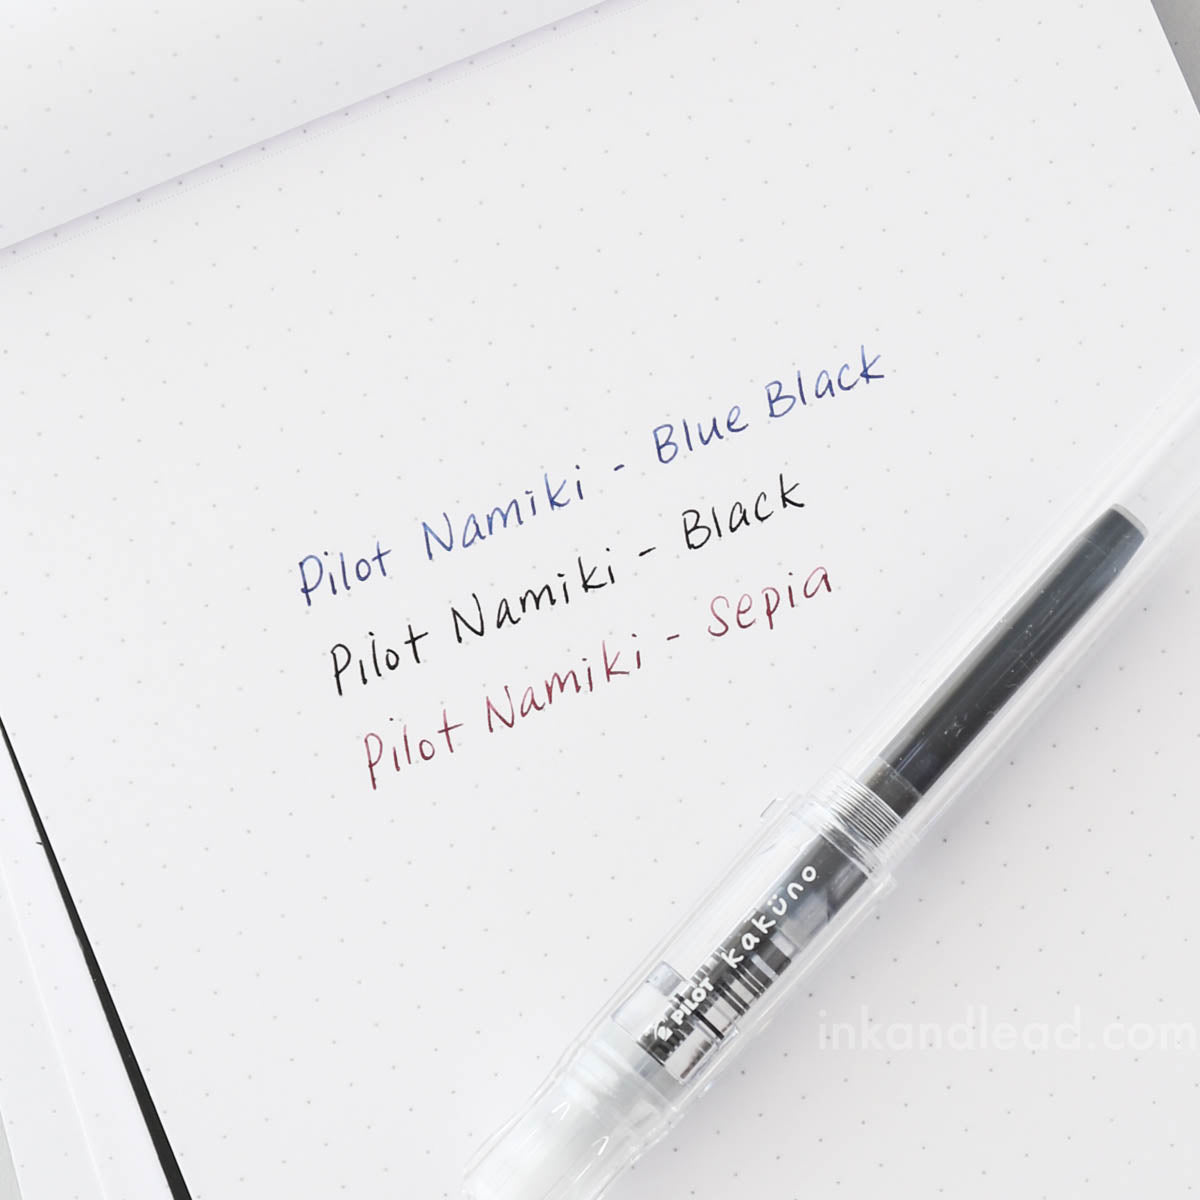 Pilot Namiki - Blue Black
Pilot Namiki - Black
Pilot Namiki - Sepia
PILOT kaküno
inkandlead.com